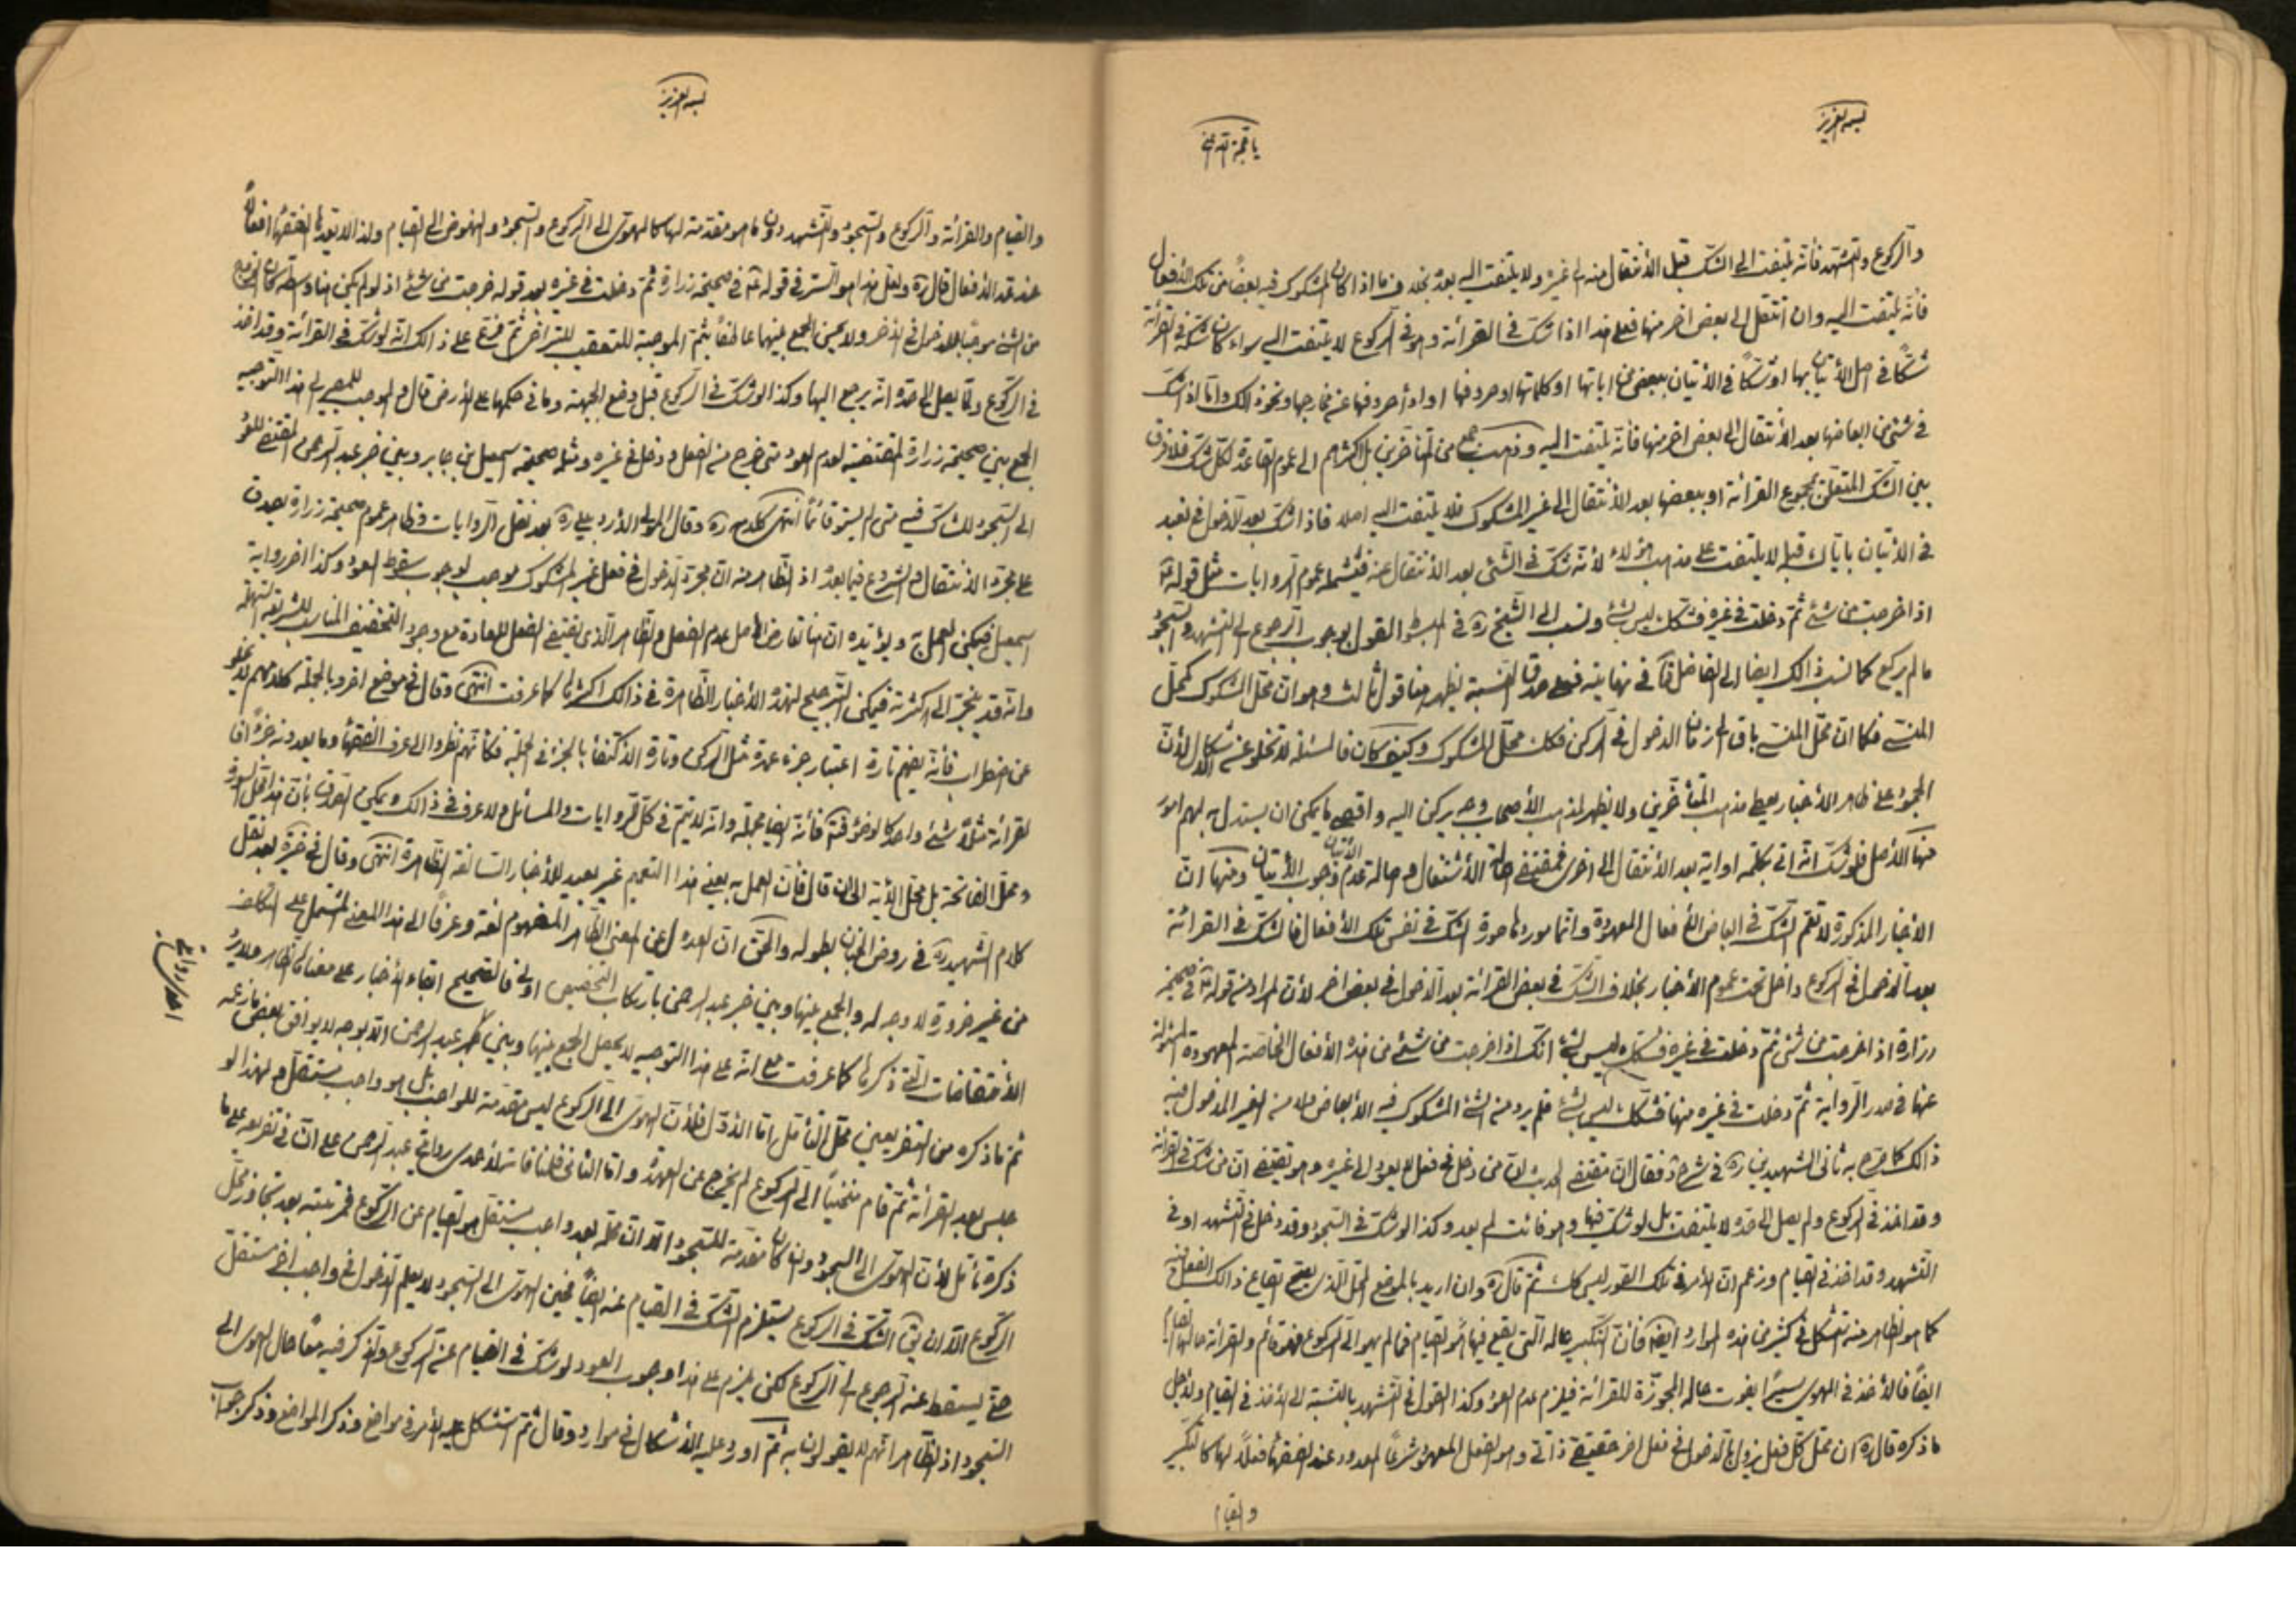 بسمه العزيز
والركوع والتشهد فانه يلتفت الى الشك قبل الأنتقال منه الى غيره ولا يلتفت اليه بعده بخلاف ما اذا كان المشكوك فيه بعضاً من تلك الأفعال
فأنه يلتفت اليه وان انتقل الى بعض اخر منها فعلى هذا اذا شك في القرائة وهو في الركوع لا يلتفت اليه سواء كان شكه في القرائة
شكاً في اصل الأتيان بها او شكاً في الأتيان ببعض من اياتها او كلماتها او حروفها او اداء حروفها عن مخارجها ونحو ذالك واما اذا شك
في شئ من ابعاضها بعد الأنتقال الى بعض اخر منها فأنه يلتفت اليه وذهب جمع من المتأخرين بل اكثرهم الى عموم القاعدة لكل شك فلا فرق
بين الشك المتعلق بمجموع القرائة او ببعضها بعد الأنتقال الى غير المشكوك فلا يلتفت اليه اصلا فاذا شك بعد الدخول في نعبد
في الأتيان باياك قبله لا يلتفت على مذهب هؤلاء لأنه شك في الشئ بعد الأنتقال عنه فيشمله عموم الروايات مثل قوله ع
اذا خرجت من شئ ثم دخلت في غيره فشكك ليس بشئ ونسب الى الشيخ ره في المبسوط القول بوجوب الرجوع الى التشهد والسجود
ما لم يركع كما نسب ذالك ايضا الى الفاضل في نهايته فعلى صدق النسبة يظهر هنا قول ثالث وهو ان محل الشكوك كمحل
المنسي فكما ان محل المنسي باق الى زمان الدخول في الركن فكك محل المشكوك وكيف كان فالمسئلة لا تخلو عن اشكال لأن
الجمود على ظاهر الأخبار يعطي مذهب المتأخرين ولا يظهر لمذهب الأصحاب وجه يركن اليه واقصى ما يمكن ان يستدل به لهم امور
منها الأصل فلو شك انه اتى بكلمه او اية بعد الأنتقال الى اخرى فمقتضى اصالة الأشتغال واصالة عدم الأتيان وجوب الأتيان ومنها ان
الأخبار المذكورة لا تعم الشك في ابعاض الأفعال المعهودة وانما موردها صورة الشك في نفس تلك الأفعال فالشك في القرائة
بعد الدخول في الركوع داخل تحت عموم الأخبار بخلاف الشك في بعض القرائة بعد الدخول في بعض اخر لأن المراد من قوله ع في صحيحة
زرارة اذا خرجت من شئ ثم دخلت في غيره فشكك ليس بشئ انك اذا خرجت من شئ من هذه الأفعال الخاصة المعهودة المسئولة
عنها في صدر الرواية ثم دخلت في غيره منها فشكك ليس بشئ فلم يرد من الشئ المشكوك فيه الأبعاض ولا من الغير المدخول فيه
ذالك كما صرح به ثاني الشهيدين ره في شرح فقال ان مقتضى الحديث ان من دخل في فعل لا يعود الى غيره وهو يقتضي ان من شك في القرائة
وقد اخذ في الركوع ولم يصل الى حده لا يلتفت بل لو شك فيها وهو قانت لم يعد وكذا لو شك في السجود وقد دخل في التشهد او في
التشهد وقد اخذ في القيام وزعم ان الأمر في تلك الصور ليس كك ثم قال ره وان اريد بالموضع المحل الذي يصح ايقاع ذالك الفعل فيه
كما هو الظاهر منه تشكل في كثير من هذه الموارد ايضا فأن التكبير حاله التي يقع فيها هو القيام فما لم يهو الى الركوع فهو قائم والقرائة حالها القيام
ايضاً فالأخذ في الهوي يسيراً يفوت حاله المجوزة للقرائة فيلزم عدم العود وكذا القول في التشهد بالنسبة الى الأخذ في القيام ولأجل
ما ذكره قال ره ان محل كل فعل يزول بالدخول في فعل اخر حقيقي ذاتي وهو الفعل المعهود شرعاً المعدود عند الفقهاء فعلاً لها كالتكبير
والقيام
بسمه العزيز
والقيام والقرائة والركوع والسجود والتشهد دون ما هو مقدمة لها كالهوي الى الركوع والسجود والنهوض الى القيام ولذا لا يعدها الفقهاء افعالاً
عند عد الأفعال قال ره ولعل هذا هو السر في قوله ع في صحيحة زرارة ثم دخلت في غيره بعد قوله خرجت من شئ اذ لو لم يكن هنا واسطة كان الخروج
من الشئ موجبا للدخول في الأخر ولا يحسن الجمع بينهما عاطفاً بثم الموجبة للتعقيب المتراخي ثم فرع على ذالك انه لو شك في القرائة وقد اخذ
في الركوع ولما يصل الى حده انه يرجع اليها وكذا لو شك في الركوع قبل وضع الجبهة وما في حكمها على الأرض قال والموجب للمصير الى هذا التوجيه
الجمع بين صحيحة زرارة المقتضية لعدم العود متى خرج من الفعل ودخل في غيره ومثله صحيحة اسمعيل بن جابر وبين خبر عبد الرحمن المقتضي للعود
الى السجود للشاك فيه متى لم يستو قائماً انتهى كلامه ره وقال المولى الأردبيلي ره بعد نقل الروايات وظاهر عموم صحيحة زرارة يصدق
على مجرد الأنتقال والشروع فيما بعده اذ الظاهر منه ان مجرد الدخول في فعل غير المشكوك موجب لوجوب سقوط العود وكذا اخر رواية
اسمعيل فيمكن العمل به ويؤيده ان هنا تعارض الأصل عدم الفعل والظاهر الذي يقتضي الفعل للعادة مع وجود التخفيف المناسب للشريعة السهلة
وانه قد ينجر الى الكثرة فيمكن الترجيح لهذه الأخبار الظاهرة في ذالك اكثرها كما عرفت انتهى وقال في موضع اخر وبالجملة كلامهم لا يخلو
عن اضطراب فأنه يفهم تارة اعتبار جزء عمدة مثل الركن وتارة الأكتفاء بالجزء في الجملة فكأنهم نظروا الى عرف الفقهاء وما يعدونه جزءاً فا
لقرائة مثلاً شئ واحد كالوضوء فتأمل فأنه ايضا مجمله وانه لا يتم في كل الروايات والمسائل ولا عرف في ذالك ويمكن الفرق بأن هذا محل السورة
ومحل الفاتحة بل محل الأية الى ان قال فأن العمل به يعني هذا التعميم غير بعيد للأخبار السالفة الظاهرة انتهى وقال في بعد نقل
كلام الشهيد ره في روض الجنان بطوله والحق ان العدول عن المعنى الظاهر المفهوم لغة وعرفاً الى هذا المعنى المشتمل على التكلف
من غير ضرورة لا وجه له والجمع بينها وبين خبر عبد الرحمن بارتكاب التخصيص اولى فالصحيح ابقاء الأخبار على معناها الظاهر ولا يرد
الأعتراضات التي ذكرها كما عرفت مع انه على هذا التوجيه لا يحصل الجمع بينها وبين خبر عبد الرحمن الا بوجه لا يوافق بعض ما زعمه
ثم ما ذكره من التفريعين محل التأمل اما الأول فلأن الهوي الى الركوع ليس مقدمة للواجب بل هو واجب مستقل ولهذا لو
جلس بعد القرائة ثم قام منحنياً الى الركوع لم يخرج عن العهدة واما الثاني فلمنافاته لأحدى روايتي عبد الرحمن على ان في تفريعه على ما
ذكره تأمل لأن الهوي الى السجود وان كان مقدمة للسجود الا ان محله بعد واجب مستقل هو القيام عن الركوع فمرتبته بعد تجاوز محل
الركوع الا ان يق الشك في الركوع يستلزم الشك في القيام عنه ايضاً فحين الهوي الى السجود لا يعلم الدخول في واجب اخر مستقل
حتى يسقط عنه الرجوع الى الركوع لكن يلزم على هذا وجوب العود لو شك في القيام عن الركوع والذكر فيه معاً حال الهوي الى
السجود اذ الظاهر انهم لا يقولون به ثم اورد عليه الأشكال في موارد وقال ثم استشكل عليه الأمر في مواضع وذكر المواضع وذكر جواب